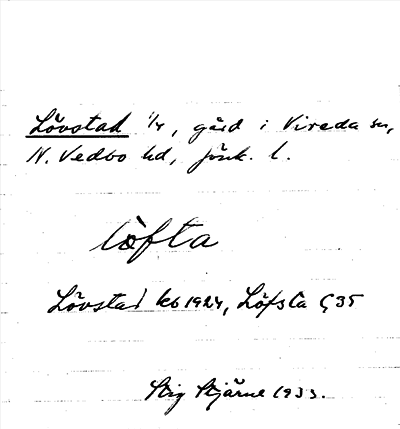 Lövstad 1/4, gård i Vireda sn,
N. Vedbo hd, Jönk. l.
löfta
Lövstad kb 1924, Löfsta G35
Stig Stjärne 1933.